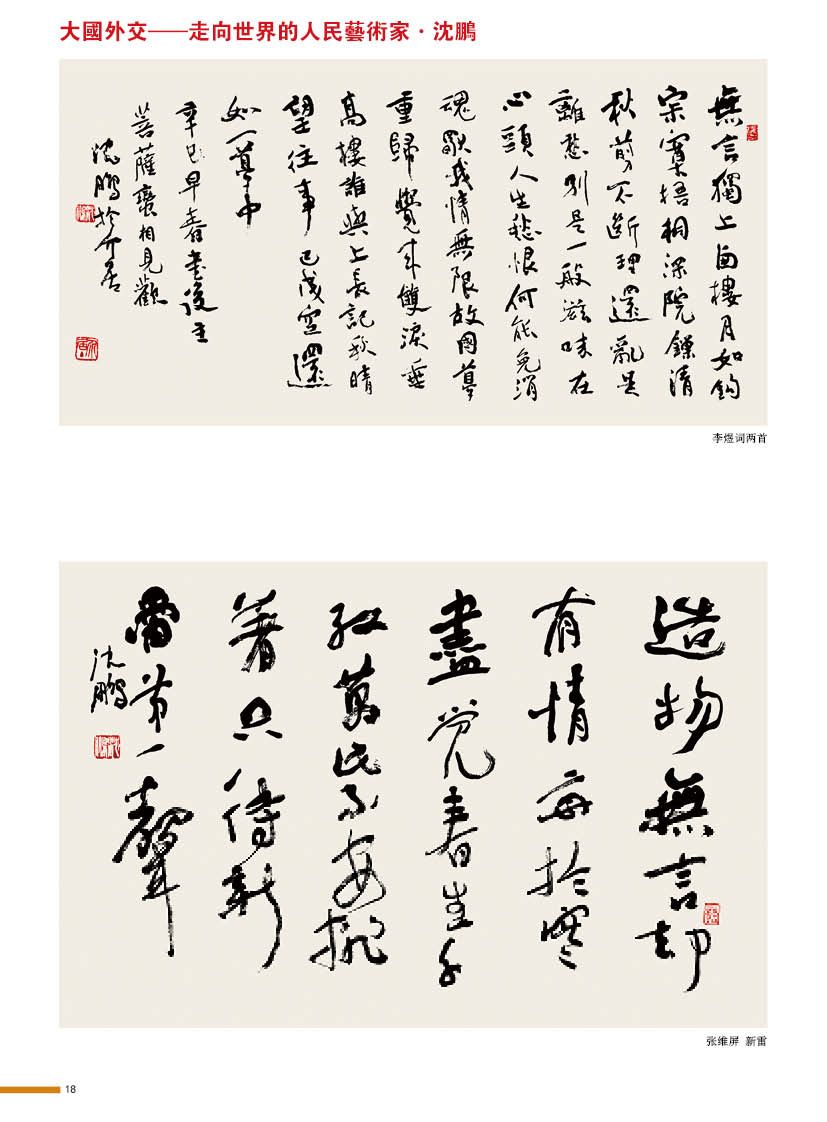 大國外交——走向世界的人民藝術家·沈鵬
無言獨上西樓月如鈎
寂寞梧桐深院鎖清
秋剪不斷理還亂是
離愁別是一般滋味在
心頭人生愁恨何能免消
魂獨我情無限故國夢
重歸覺來雙淚垂
高樓誰與上長記秋晴
望往事已成空還
如一夢中
辛巳早春書後主
菩薩蠻相見歡
沈鵬於介居
李煜词两首
造物無言却
有情每於寒
盡覺春生千
紅萬紫安排
著只待新
雷第一聲
沈鵬
张维屏 新雷
18